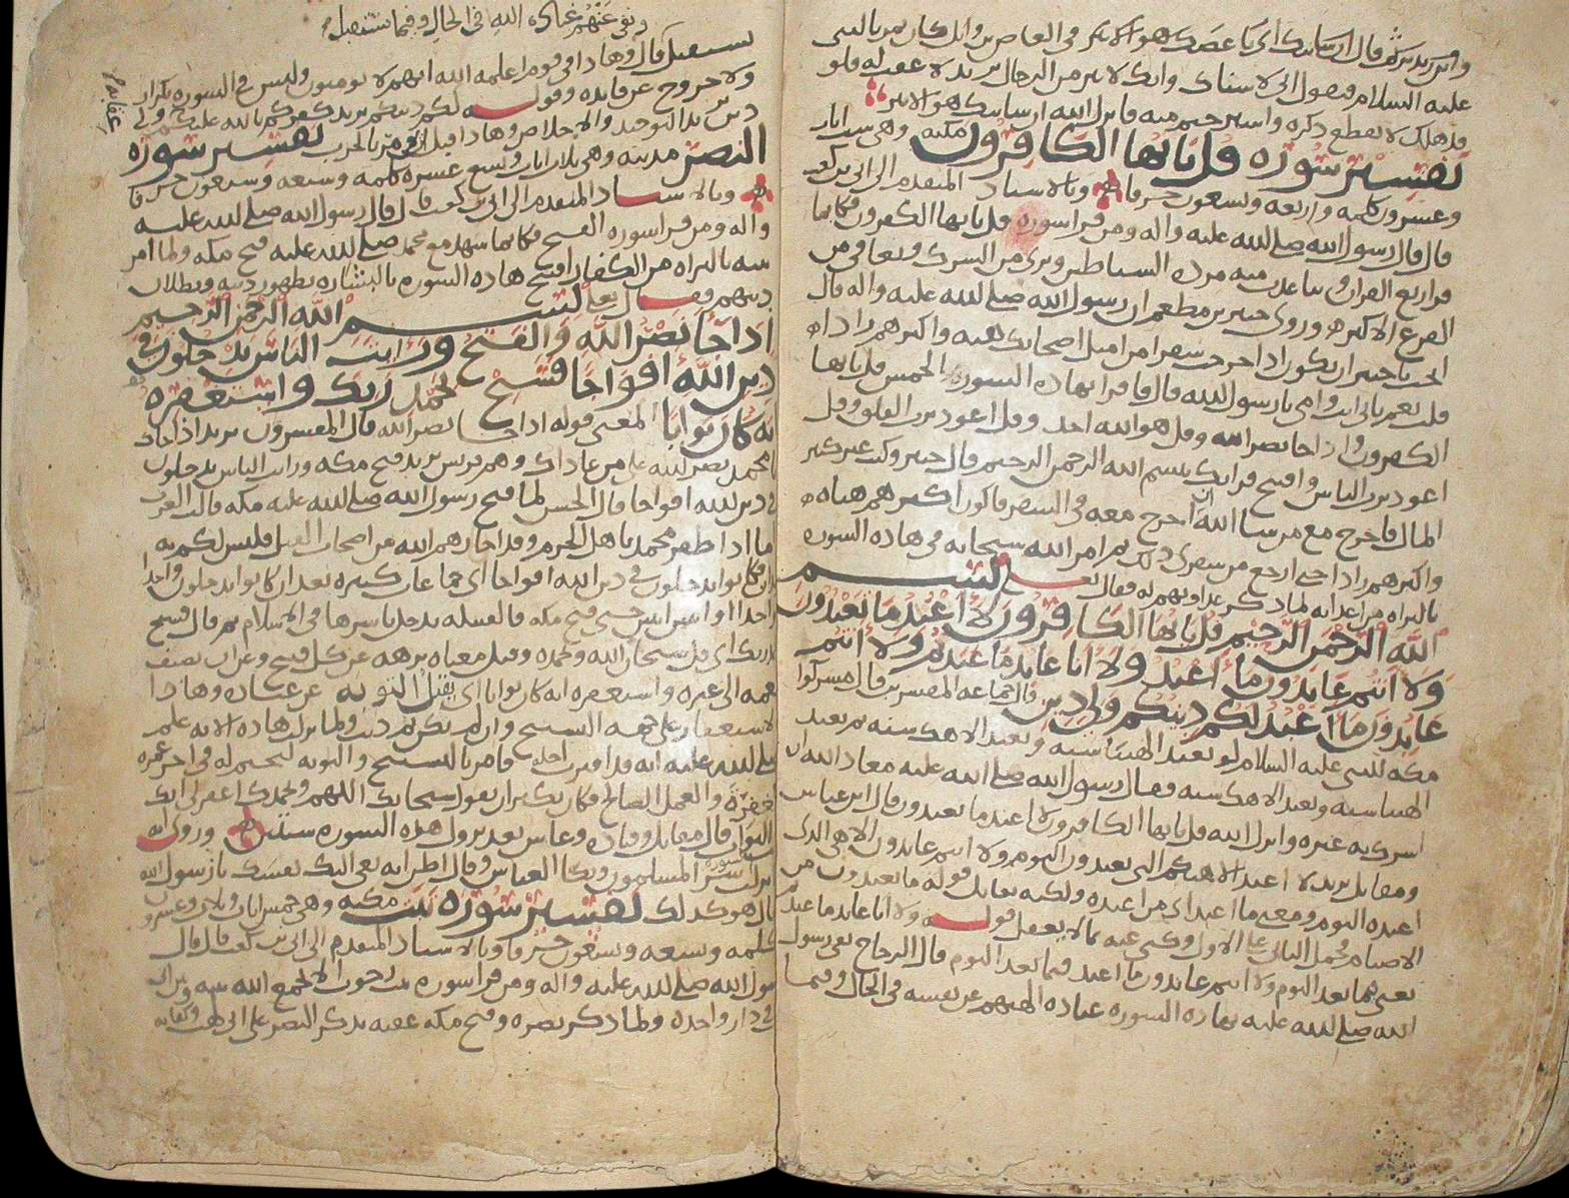 عليه السلام فيقول الى لاستاك وانك لابتر من الرجال يريد لا عقب له فلو
قد هلك لا يقطع ذكره واستريح منه فانزل الله ان شانيك هو الابتر
تفسير سورة قل يايها الكافرون مكيه وهي ست ايات
وعشرون كلمه واربعه وتسعون حرفا وبالاسناد المتقدم الى ابي بن كعب
قال قال رسول الله صلى الله عليه واله ومن قرا سوره قل يايها الكفرون فكانما
قرا ربع القران وتباعدت منه مرده الشياطين وبري من الشرك ويعافى من
الفزع الاكبر وروى جبير بن مطعم ان رسول الله صلى الله عليه واله قال
اتحب يا جبير ان تكون اذا خرجت سفرا من امثل اصحابك هيئه واكثرهم زادا
قلت نعم بابي انت وامي يا رسول الله قال فاقرا بهاده السور الخمس قل يايها
الكفرون واذا جا نصر الله وقل هو الله احد وقل اعوذ برب الفلق وقل
اعوذ برب الناس وافتتح قراتك ببسم الله الرحمن الرحيم قال جبير وكنت غير كثير
المال فاخرج مع من شا الله ان اخرج معه في السفر فاكون اكثرهم هياه
واكثرهم زادا حتى ارجع من سفري ذلك ثم امر الله سبحانه في هاده السوره
بالبراه من اعدايه لما ذكر عداوتهم له فقال تعلى بسم
الله الرحمن الرحيم قل يايها الكافرون لا اعبد ما تعبدون
ولا انتم عابدون ما اعبد ولا انا عابد ما عبدتم ولا انتم
عابدون ما اعبد لكم دينكم ولي دين قال جماعه المفسرين قال مشركوا
مكه للنبي عليه السلام لو تعبد الهتنا سنه ونعبد الاهك سنه ثم تعبد
الهتنا سنه ونعبد الاهك سنه فقال رسول الله صلى الله عليه معاد الله ان
اشرك به غيره وانزل الله قل يايها الكافرون لا اعبد ما تعبدون قال ابن عباس
ومقاتل يريد لا اعبد الاهتكم التي تعبدون اليوم ولا انتم عابدون الاهي الذي
اعبده اليوم ومعنى ما اعبد اي من اعبده ولكنه يقابل قوله ما تعبدون من
الاصنام فحمل الثاني على الاول وكنى عنه بما لا يعقل قوله ولا انا عابد ما عبدتم
يعني فيما بعد اليوم ولا انتم عابدون ما اعبد فيما بعد اليوم قال الزجاج نفى رسول
الله صلى الله عليه بهاده السوره عباده الهتهم عن نفسه في الحال وفيما
ونفى عنهم عباده الله في الحال وفيما يستقبل
يستقبل قال وهادا في قوم اعلمه الله انهم لا يومنون وليس في السوره تكرار
ولا خروج عن فايده وقوله لكم دينكم يريد كفركم بالله عليكم ولي
دين يريد التوحيد والاخلاص وهادا قبل ان يومر بالحرب تفسير سورة
النصر مدنيه وهي ثلاث ايات وتسع عشره كلمه وسبعه وسبعون حرفا
وبالاسناد المتقدم الى ابي بن كعب قال قال رسول الله صلى الله عليه
واله ومن قرا سوره الفتح فكانما شهد مع محمد صلى الله عليه فتح مكه ولما امر
نبيه بالبراه من الكفار افتتح هاده السوره بالبشاره بظهور دينه وبطلان
دينهم فقال تعلى بسم الله الرحمن الرحيم
اذا جا نصر الله والفتح ورايت الناس يدخلون في
دين الله افواجا فسبح بحمد ربك واستغفره
انه كان توابا المعنى قوله اذا جا نصر الله قال المفسرون يريد اذا جاك
يا محمد نصر الله على من عاداك وهم قريش يريد فتح مكه ورايت الناس يدخلون
في دين الله افواجا قال الحسن لما فتح رسول الله صلى الله عليه مكه قالت العرب
اما اذا ظفر محمد باهل الحرم وقد اجارهم الله من اصحاب الفيل فليس لكم به
يدان فكانوا يدخلون في دين الله افواجا اي جماعات كثيره بعد ان كانوا يدخلون واحدا
واحدا واثنين اثنين حتى فتح مكه فالقبيله تدخل باسرها في الاسلام ثم قال فسبح
بحمد ربك اي قل سبحان الله وبحمده وقيل معناه نزهه عن كل قبيح
الاستغفار على جهه التسبيح وان لم يكن ثم ذنب ولما نزلت هاده الايه علم
صلى الله عليه انه قد اقترب اجله فامر بالتسبيح والتوبه ليختم له في اخر عمره
والعمل الصالح فكان يكثر ان يقول سبحانك اللهم وبحمدك اغفر لي انك
التواب قال مقاتل وقتاده وعاش بعد نزول هذه السوره سنتين وروي انه
نزلت السوره المسلمون وبكا العباس وقال اظن انه نعى اليك نفسك يا رسول الله
قال هو كدلك تفسير سورة تبت مكيه وهي خمس ايات وثلاث وعشرون
كلمه وسبعه وسبعون حرفا وبالاسناد المتقدم الى ابي بن كعب قال قال
رسول الله صلى الله عليه واله ومن قرا سوره تبت رجوت الا يجمع الله بينه وبين ابي
في دار واحده ولما ذكر نصره وفتح مكه عقبه بذكر النصر على ابي لهب